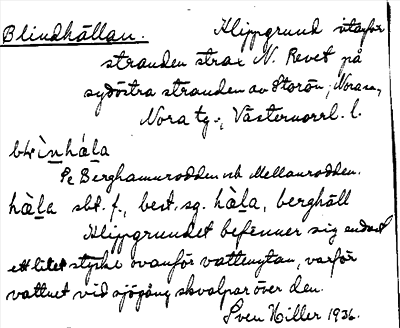 Blindhällan. Klippgrund utanför
stranden strax N. Revet på
sydöstra stranden av Storön, Nora sn,
Nora tg., Västernorrl. l.
blìnhála
Se Berghamnrodden och Mellanrodden.
hàla sbt. f., best. sg. hàla, berghäll
Klippgrundet befinner sig endast
ett litet stycke ovanför vattenytan, varför
vattnet vid sjögång skvalpar över den.
Sven Hiller 1936.